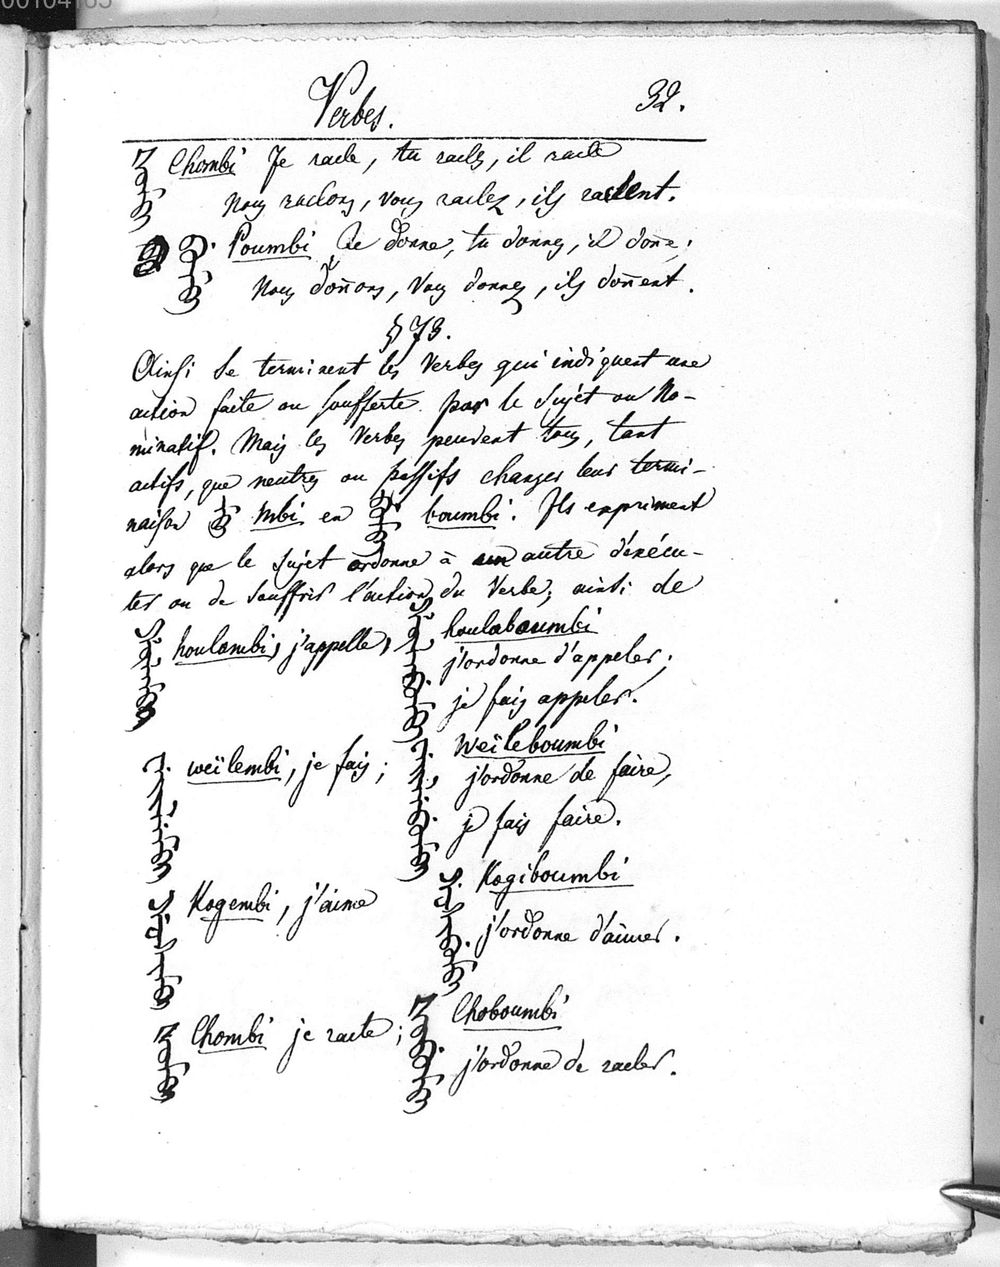 00104165
Verbes. 32.
Chombi Je racle, tu racles, il racle
nous raclons, vous raclez, ils raclent.
Poumbi Je donne, tu donnes, il don̄e;
nous don̄ons, vous donnez, ils don̄ent.
§ 73.
Ainsi se terminent les Verbes qui indiquent une
action faite ou soufferte par le sujét ou No-
minatif. Mais les Verbes peuvent tous, tant
actifs, que neutres ou passifs changer leur termi-
naison ᠮᠪᡳ mbi en ᠪᡠᠮᠪᡳ boumbi. Ils expriment
alors que le sujet ordonne à un autre d'exécu-
ter ou de souffrir l'action du Verbe; ainsi de
houlambi, j'appelle, houlaboumbi
j'ordonne d'appeler;
je fais appeler.
weïlembi, je fais; weïleboumbi
j'ordonne de faire,
je fais faire.
Kogembi, j'aime Kogiboumbi
j'ordonne d'aimer.
Chombi je racle; Choboumbi
j'ordonne de racler.